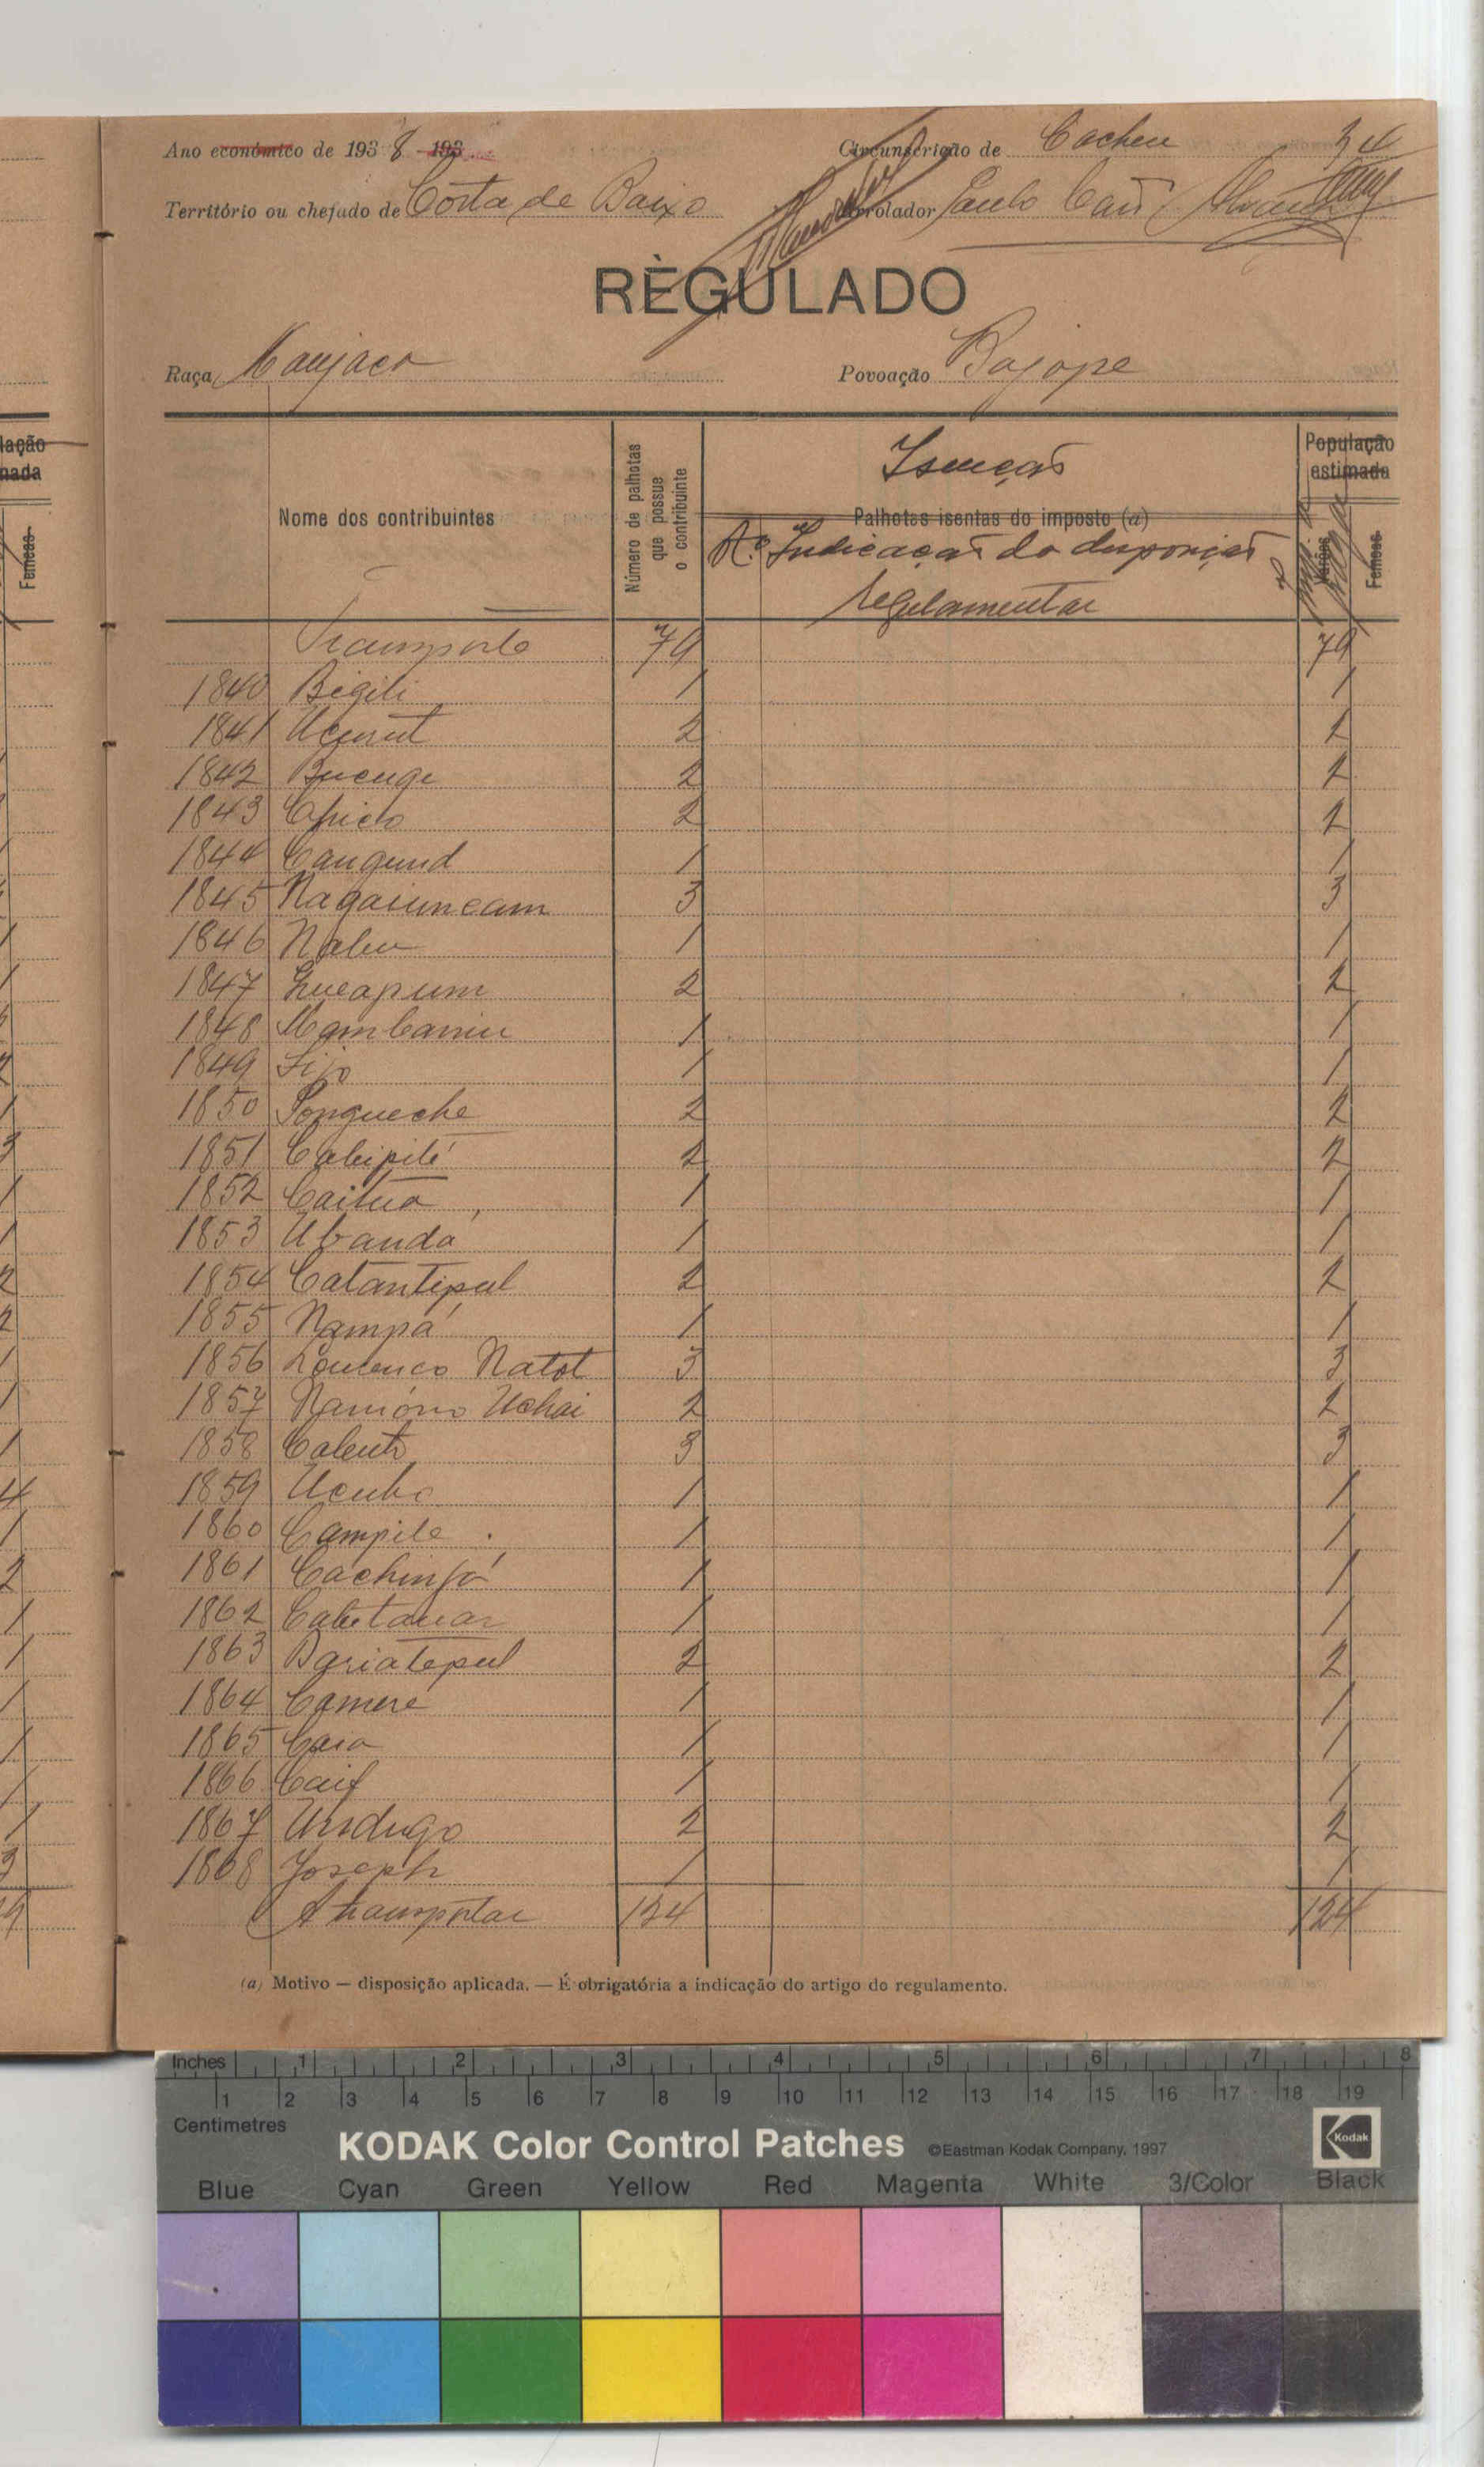 Ano económico de 193 8 193
Circunscrição de Cacheu 34
Território ou chefado de Costa de Baixo
Arrolador Paulo
RÈGULADO
Raça Manjaco
Povoação Bajope
Nome dos contribuintes
Número de palhotas que possue o contribuinte
Isenção
Palhotas isentas do imposto (a)
N.º Indicação da disposição
regulamentar
População estimada
Varões
Femeas
Transporte 79 79
1840 Bigili 1 1
1841 Ucunut 2 2
1842 Bucuge 2 2
1843 2 2
1844 Cangund 1 1
1845 3 3
1846 Nabu 1 1
1847 2 2
1848 1 1
1849 Lijo 1 1
1850 Pongueche 2 2
1851 Cabipilé 2 2
1852 Caitua 1 1
1853 Ubanda 1 1
1854 Catantipul 2 2
1855 Nampá 1 1
1856 Lourenco Natot 3 3
1857 Uchai 2 2
1858 3 3
1859 Ucubo 1 1
1860 Campile 1 1
1861 1 1
1862 1 1
1863 2 2
1864 Camere 1 1
1865 Caia 1 1
1866 Caif 1 1
1867 Undugo 2 2
1868 Joseph 1 1
A transportar 124 124
(a) Motivo — disposição aplicada. — É obrigatória a indicação do artigo do regulamento.
lação
nada
Femeas
Inches 1 2 3 4 5 6 7 8
1 2 3 4 5 6 7 8 9 10 11 12 13 14 15 16 17 18 19
Centimetres
KODAK Color Control Patches ©Eastman Kodak Company, 1997 Kodak
Blue Cyan Green Yellow Red Magenta White 3/Color Black